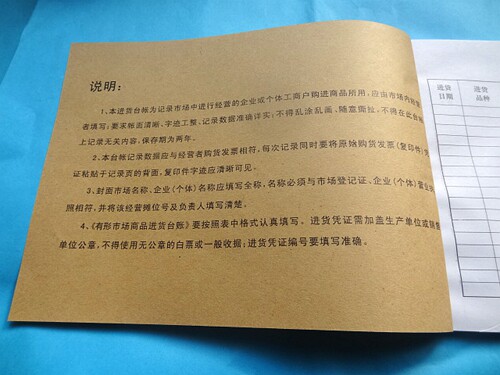 说明：
1、本进货台帐为记录市场中进行经营的企业或个体工商户购进商品所用，应由市场内经营
者填写；要求帐面清晰、字迹工整、记录数据准确详实；不得乱涂乱画、随意撕扯，不得在此台帐
上记录无关内容，保存期为两年。
2、本台帐记录数据应与经营者购货发票相符，每次记录同时要将原始购货发票（复印件）凭
证粘贴于记录页的背面，复印件字迹应清晰可见。
3、封面市场名称、企业（个体）名称应填写全称，名称必须与市场登记证、企业（个体）营业执
照相符，并将该经营摊位号及负责人填写清楚。
4、《有形市场商品进货台账》要按照表中格式认真填写。进货凭证需加盖生产单位或销售
单位公章，不得使用无公章的白票或一般收据；进货凭证编号要填写准确。
进货 进货
日期 品种